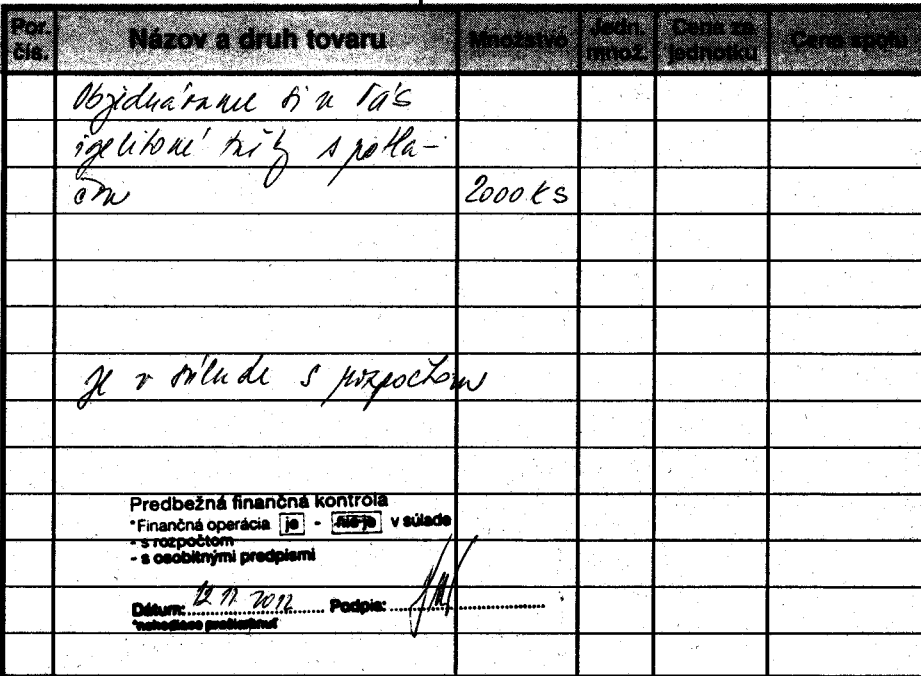 Por. čís. Názov a druh tovaru Množstvo Jedn. množ. Cena za jednotku Cena spolu
Objednávame si u Vás
igelitové tašky s potla-
čou 2000 ks
Je v súlade s rozpočtom
Predbežná finančná kontrola
*Finančná operácia je - nie je v súlade
- s rozpočtom
- s osobitnými predpismi
Dátum: 12. 11. 2012 Podpis:
*nehodiace prečiarknuť